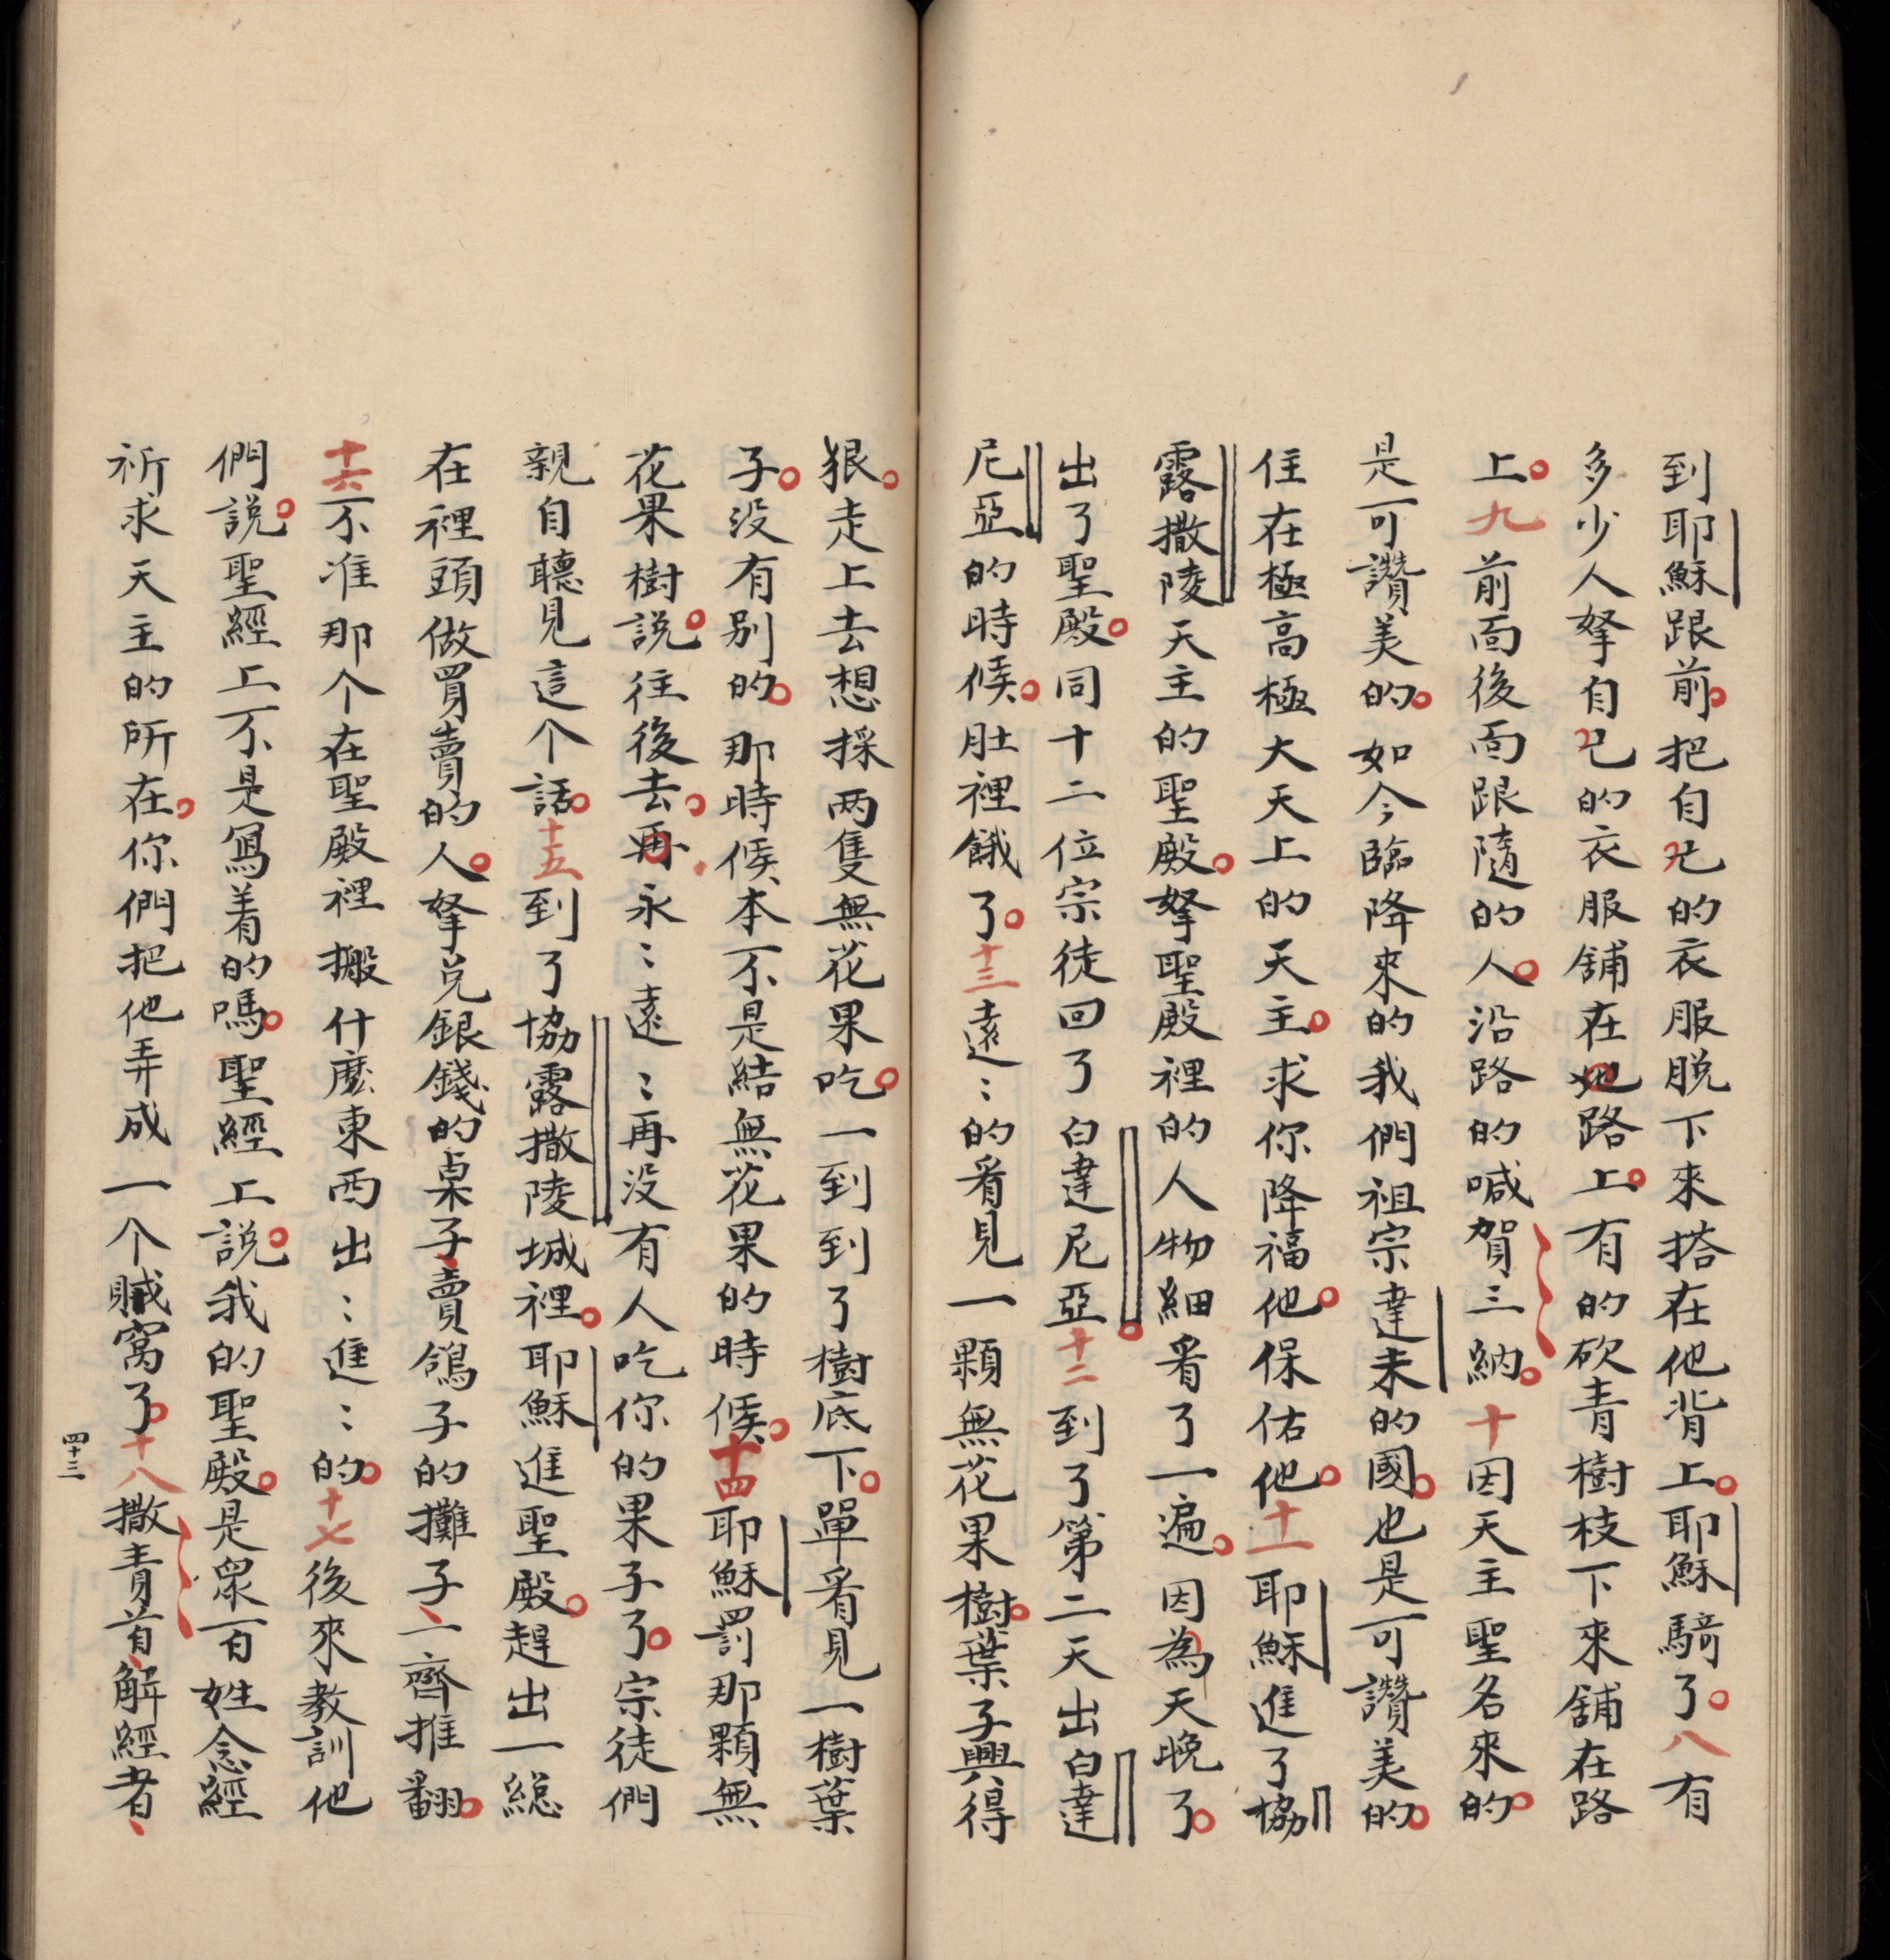 到耶穌跟前。把自己的衣服脱下來搭在他背上。耶穌騎了。八有
多少人拏自己的衣服舖在地路上。有的砍青樹枝下來舖在路
上。九前面後面跟隨的人。沿路的喊賀三納。十因天主聖名來的。
是可讚美的。如今臨降來的我們祖宗達未的國。也是可讚美的。
住在極高極大天上的天主。求你降福他。保佑他。十一耶穌進了協
露撒陵天主的聖殿。拏聖殿裡的人物細看了一遍。因為天晚了。
出了聖殿。同十二位宗徒回了白達尼亞。十二到了第二天出白達
尼亞的時候。肚裡餓了。十三遠〻的看見一顆無花果樹。葉子興得
狠。走上去想採两隻無花果吃。一到到了樹底下。單看見一樹葉
子。没有别的。那時候本不是結無花果的時候。十四耶穌罰那顆無
花果樹說。往後去。再永〻遠〻再没有人吃你的果子了。宗徒們
親自聽見這个話。十五到了協露撒陵城裡。耶穌進聖殿。趕出一総
在裡頭做買賣的人。拏兑銀錢的桌子、賣鴿子的攤子、一齊推翻。
十六不准那个在聖殿裡搬什麽東西出〻進〻的。十七後來教訓他
們說。聖經上不是寫着的嗎。聖經上說。我的聖殿。是衆百姓念經
祈求天主的所在。你們把他弄成一个賊窩了。十八撒責首、解經者、
四十三